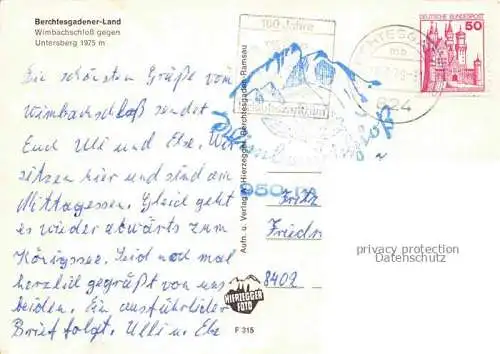 Berchtesgadener-Land
Wimbachschloß gegen
Untersberg 1975 m
Die schönsten Grüße vom
Wimbachschloß sendet
Euch Ulli und Else. Wir
sitzen hier und sind am
Mittagessen. Gleich geht
es wieder abwärts zum
Königssee. Seid noch mal
herzlich gegrüßt von uns
beiden. Ein ausführlicher
Brief folgt. Ulli u. Else
Aufn. u. Verlag: Hierzegger Berchtesgaden Ramsau
HIERZEGGER
FOTO
P 315
100 Jahre
824
DEUTSCHE BUNDESPOST
50
950 m
Fritz
Friedr
8402
privacy protection
Datenschutz